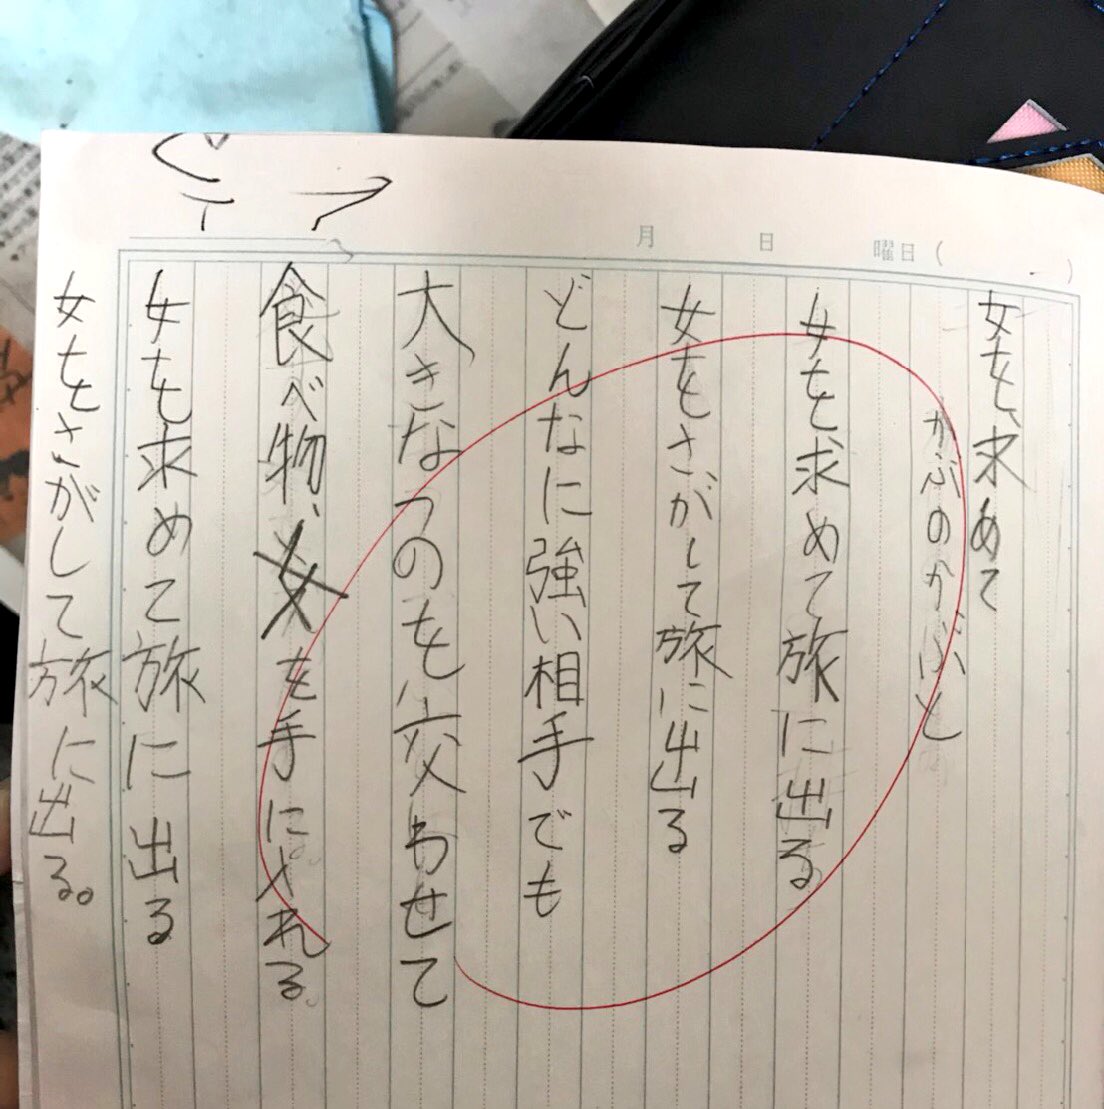 月 日 曜日( )
女を求めて
かぶのかぶと
女を求めて旅に出る
女をさがして旅に出る
どんなに強い相手でも
大きなつのを交わせて
食べ物、女を手に入れる。
女を求めて旅に出る
女をさがして旅に出る。